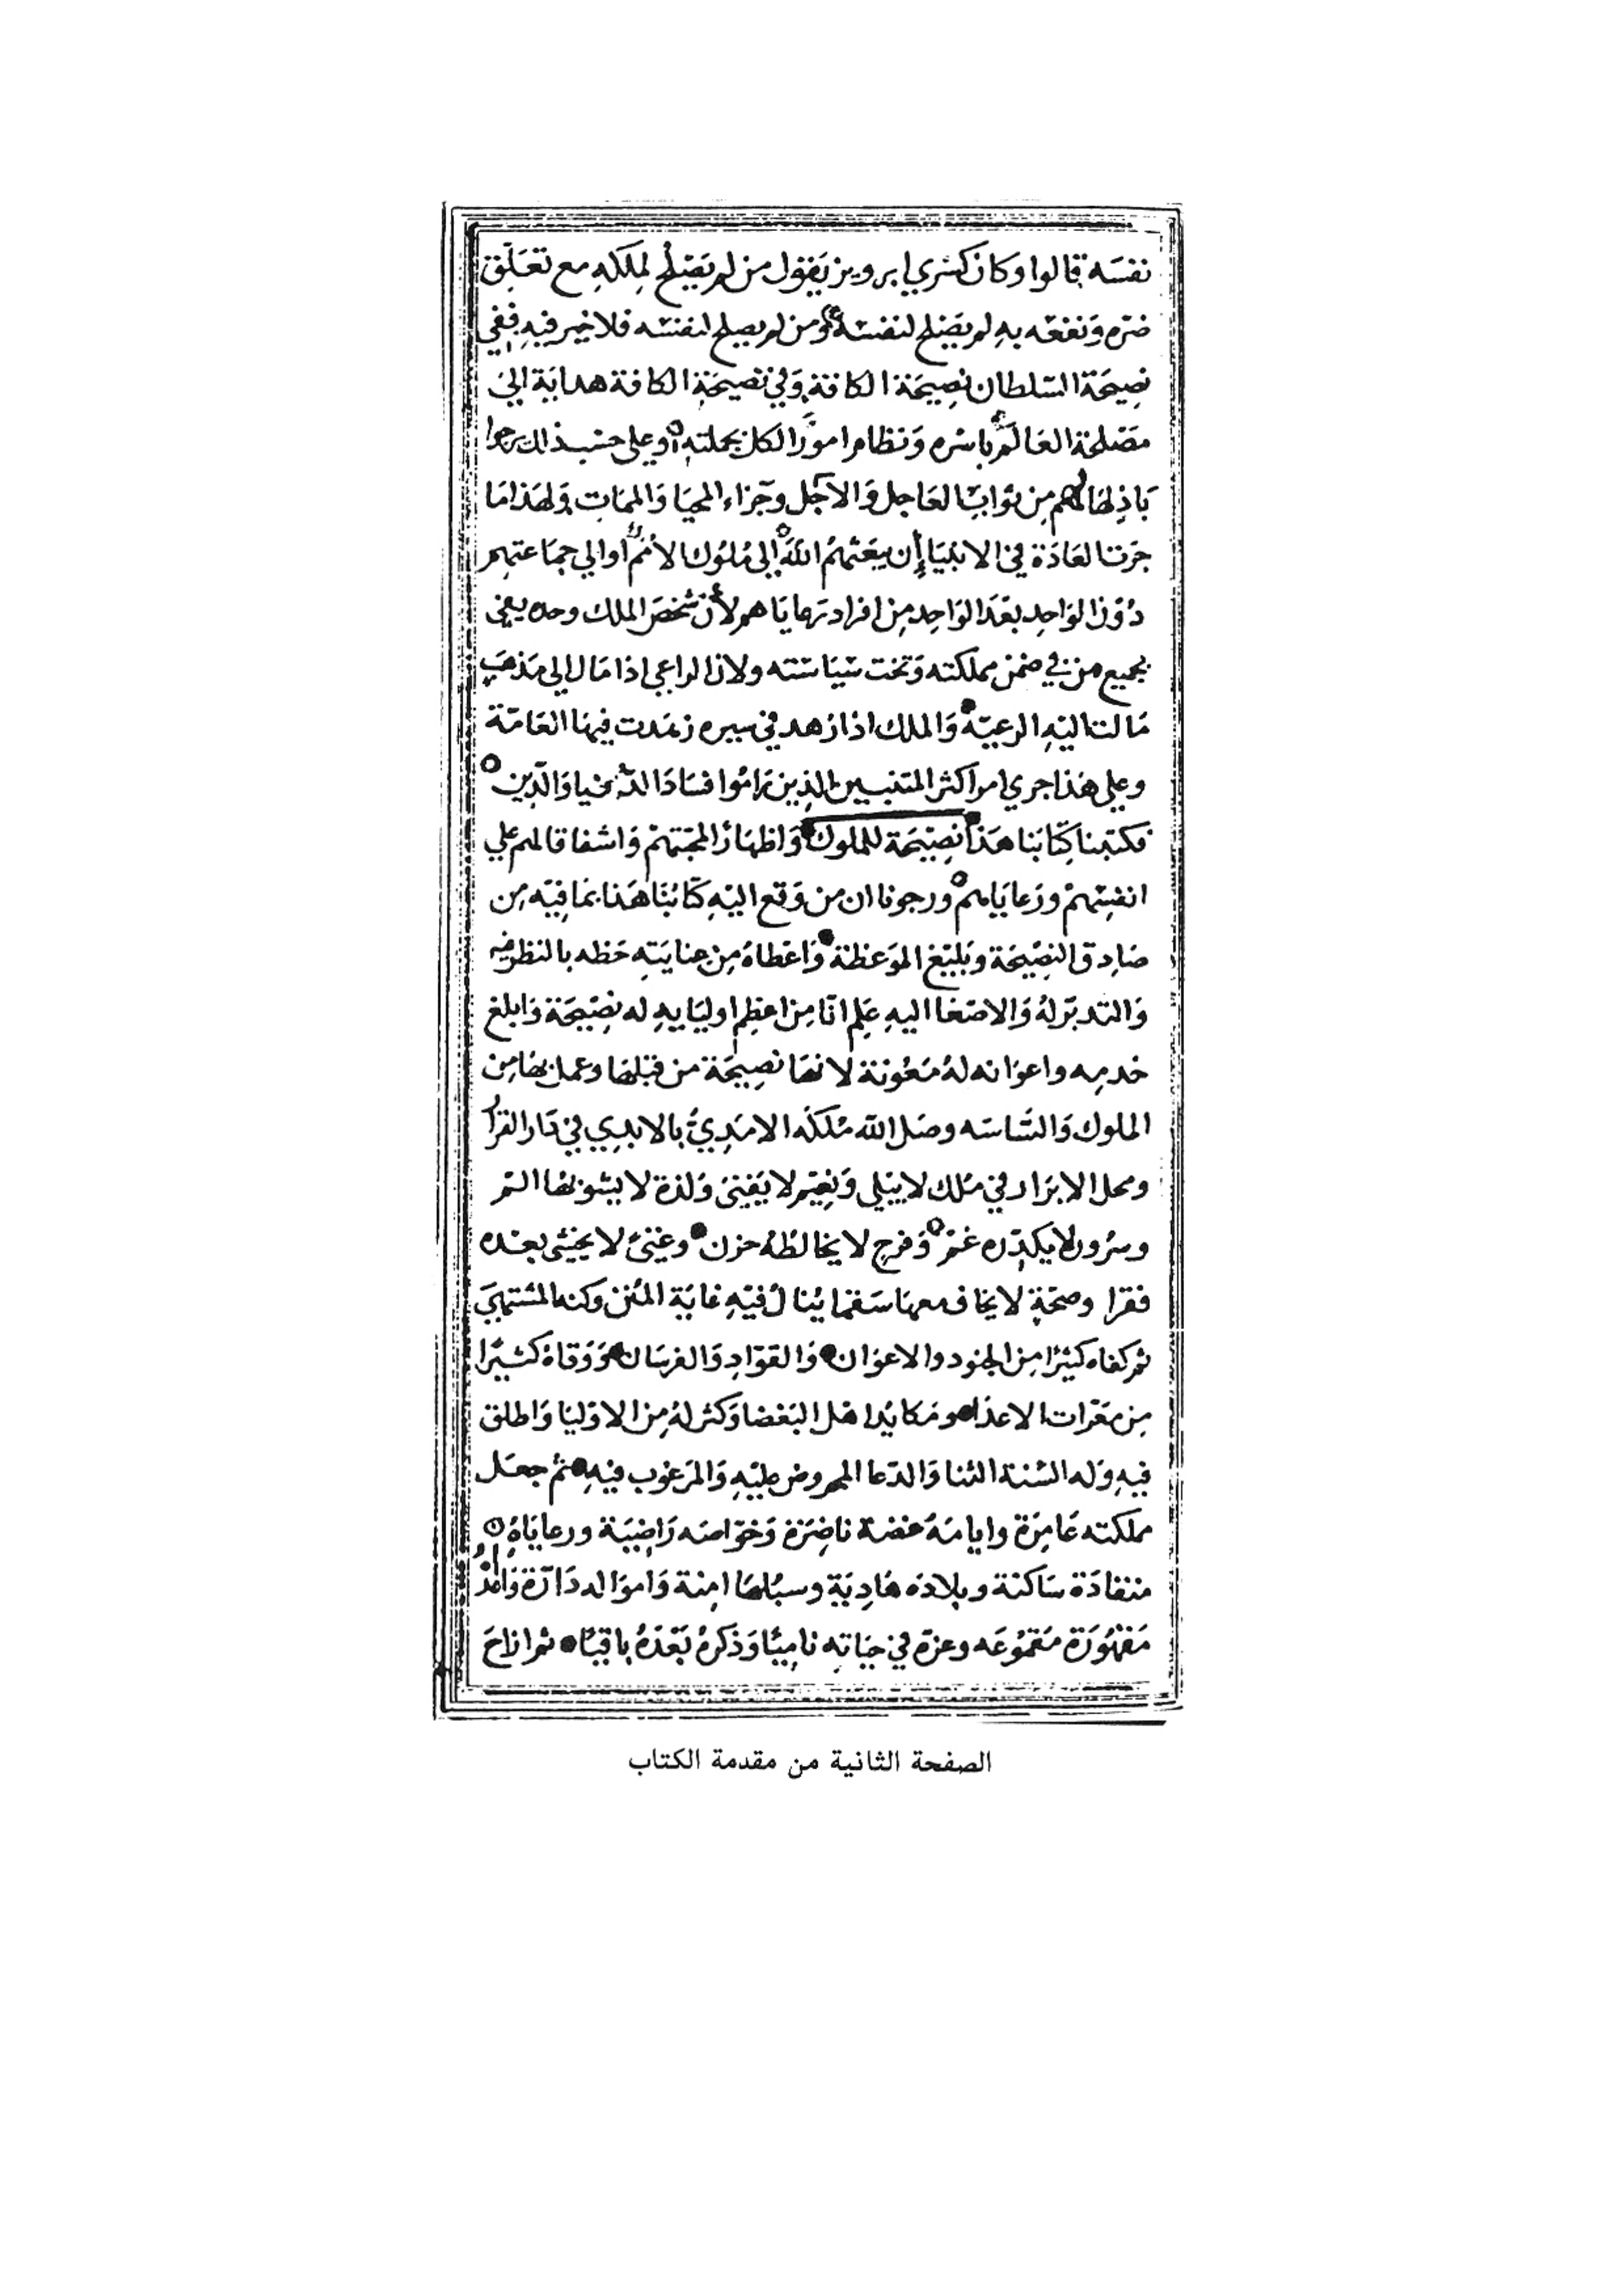 نفسَه قالوا وكان كسري ابرويز يَقول من لم يَصْلح لِملكهِ مع تعَلّق
ضرّه وَنفعه بهِ لم يَصْلح لنفسه ومن لم يصلح لنفسه فلا خير فيهِ ففي
نصِيحَة السّلطان نصِيحَة الكافة وَفي نصيحَةِ الكافة هدايَة الىَ
مصْلحة العَالَم باسْره وَنظام امورا لكل بجملته وعلى حسب ذالك يرجوا
بَاذِلهَا لهم مِن ثوابِ العَاجل وَالآجل وجَزاء المحيَا وَالممَات وَلهَذا مَا
جرَت العَادَة في الانبيَا أن يبعَثهُم اللهَ إلى مُلوُك الأمَم او الي جمَاعتهم
دُوَن الوَاحِد بعَد الوَاحِد مِن افراد رَعايَا هم لأنّ شخصَ الملك وحده يفي
بجميع من في ضمن مملكته وَتحت سيَاسَته ولان الراعي اذا مَال الي مَذهَبٍ
مَالت اليَهِ الرعيّة وَالملك اذا زهد في سيره زهَدت فيهَا العَامّة
وعلي هَذا جري امر اكثر المتنبيين الذِين رَامُوا فسَادَ الدّنيا وَالدّين
فكتبنا كِتابَنا هَذا نصِيْحَة للملوك وَاظهَارًا لمحبّتهمْ وَاشفاقا لهم علي
انفسِهمْ ورَعايَاهم ورجونا ان من وَقع اليْهِ كتَابُنَا هَذا بمَا فيِه مِن
صَادِق النصِيْحَة وبَليْغ الموَعظة وَاعْطاهُ مِن عنايَتهِ حَظه بالنظر فيه
وَالتدبّر لهُ وَالاصْغا اليهِ عَلِم انّا مِن اعظِم اوليَايهِ له نصِيْحَة وَابلغ
خدمِه واعوَانه لهُ مَعُونة لانهَا نصِيحَة من قبلهَا وعمل بهَا مِن
الملوك وَالسَّاسَه وصَل الله مُلكَه الامَدِيَّ بالابدِي في دَار القرَار
ومحل الابرَار في مُلك لا يَبلي وَنعِيْم لا يَفنىَ وَلذة لا يشوبهَا السّم
وسرُور لا يكدّره غمّ وَفرح لا يخالطهُ حزن وغِنىً لا يخشى بعدَه
فقرا وصحّةٍ لا يخاف معهَا سَقمَا يُنال فيْهِ غايَة المُنى وكنه المشتهىَ
ثم كفاه كثيرًا مِن الجنود والاعوَان وَالقوّادِ وَالفرسَان وَوَقاهُ كثيرًا
مِن معَرّات الاعدَاء ومَكايُد اهْل البَغضا وَكثر لهُ مِن الاوْليَا وَاطلق
فيهِ وَله السُنة الثنا وَالدّعا المحروص عليْهِ وَالمرَغوب فيْهِ ثم جعَل
مملكته عَامِرَة وايامَهُ غضة ناضِرَة وَخوّاصَه رَاضِيَة ورعايَاهُ
منقادَة سَاكنة وبِلادَه هَادِيَة وسبُلهَا امِنة وَاموَاله دَارّة
مَقهُورَة مَقموُعَه وعزّه في حيَاتِه ناميًا وَذكرهُ بَعْدَهُ باقيًا ثم اناحَ
الصفحة الثانية من مقدمة الكتاب